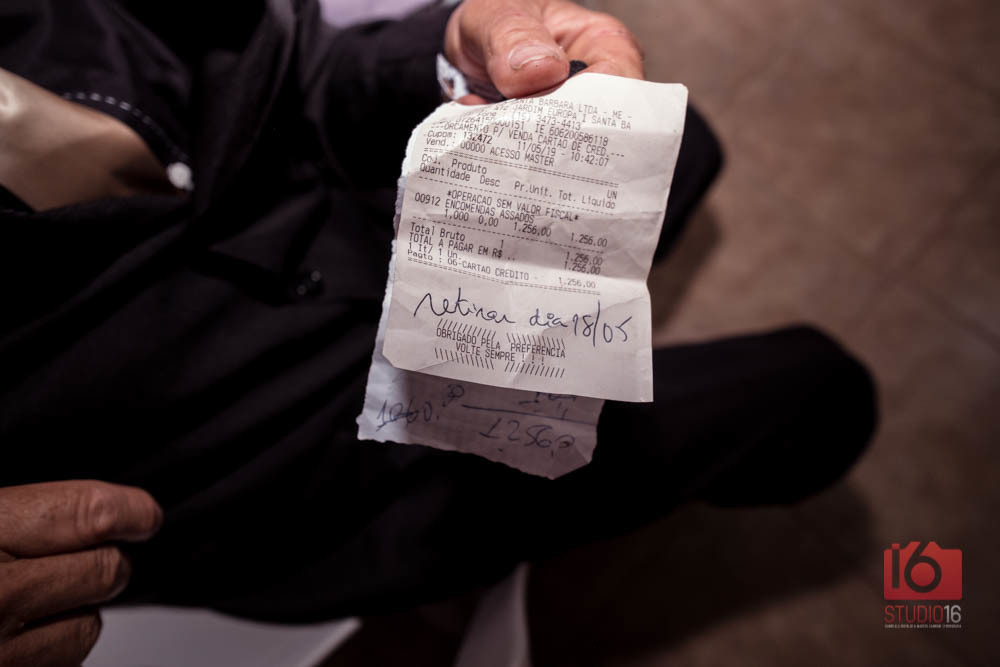 SANTA BARBARA LTDA - ME -
JARDIM EUROPA I SANTA BA
(15) 3473-4413
IE 606200586119
---ORCAMENTO P/ VENDA CARTAO DE CRED.---
Cupom: 132472 11/05/19 - 10:42:07
Vend.: 00000 ACESSO MASTER
Cod. Produto UN
Quantidade Desc Pr.Unit. Tot. Liquido
*OPERACAO SEM VALOR FISCAL*
00912 ENCOMENDAS ASSADOS
1,000 0,00 1.256,00 1.256,00
Total Bruto 1 1.256,00
TOTAL A PAGAR EM R$ .. 1.256,00
1 It/ 1 Un.
Pagto : 06-CARTAO CREDITO - 1.256,00
retirar dia 18/05
OBRIGADO PELA PREFERENCIA
VOLTE SEMPRE ! ! !
i6
STUDIO16